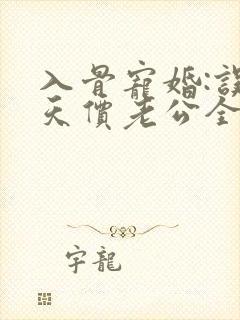 入骨寵婚:誤
天價老公全
字龍